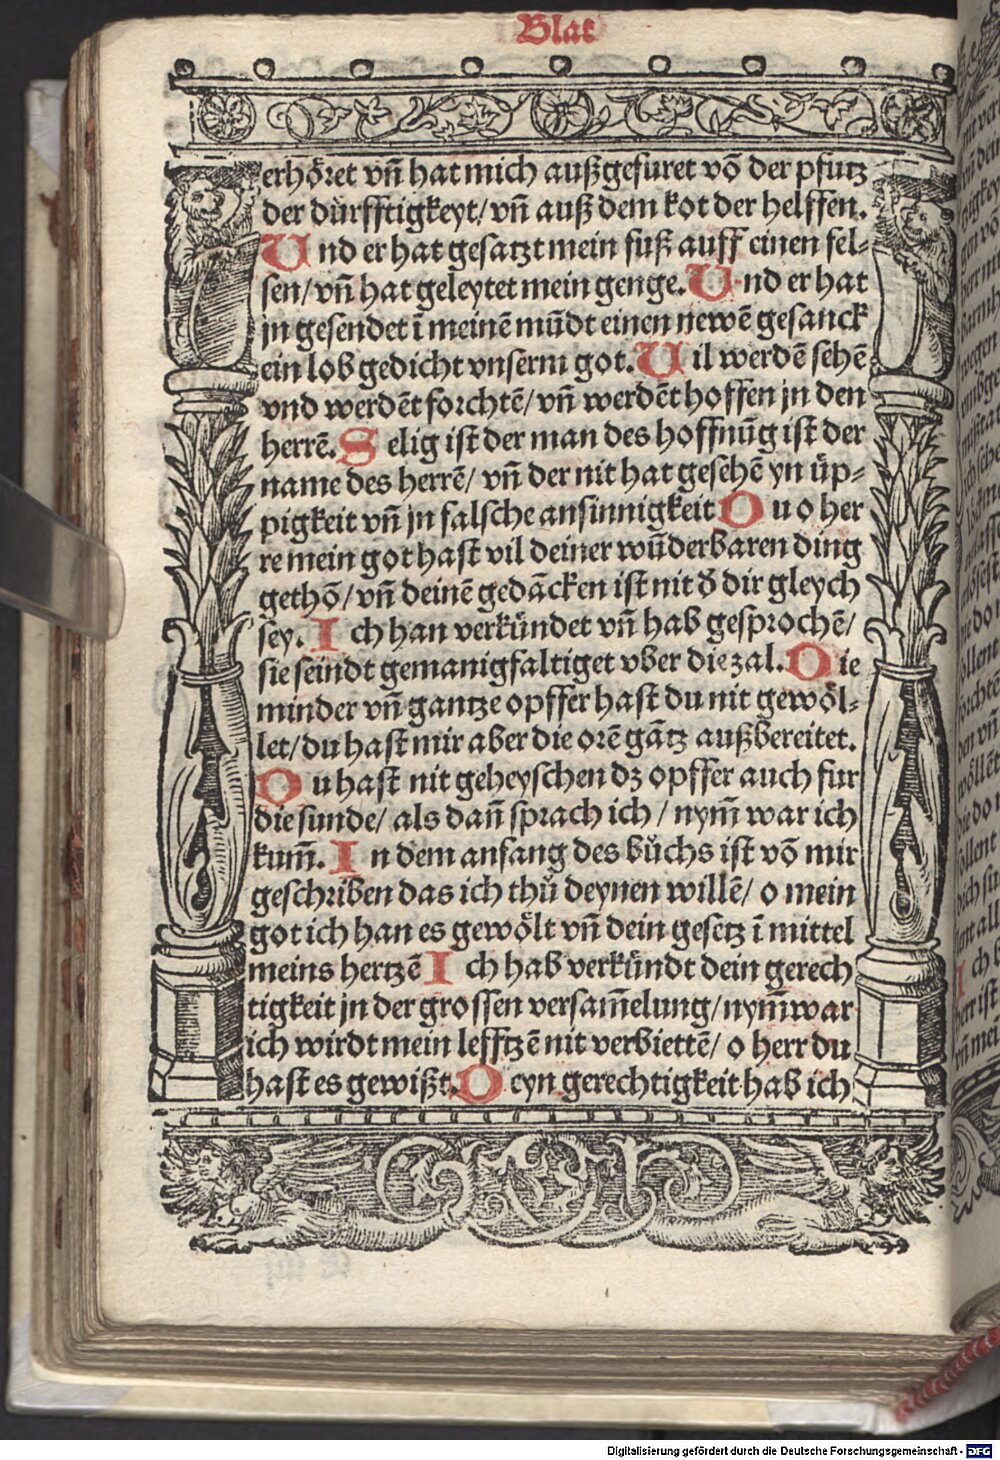 Blat
erhöret vñ hat mich außgefuret võ der pfutz
der dürfftigkeyt/ vñ auß dem kot der helffen.
Und er hat gesatzt mein fuß auff einen fel⸗
sen/ vñ hat geleytet mein genge. Und er hat
jn gesendet ī meinē mūdt einen newē gesanck
ein lob gedicht vnserm got. Uil werdē sehē
vnd werdēt forchtē/ vñ werdēt hoffen jn den
herrē. Selig ist der man des hoffnūg ist der
name des herrē/ vñ der nit hat gesehē yn üp⸗
pigkeit vñ jn falsche ansinnigkeit Du o her
re mein got hast vil deiner wūderbaren ding
gethō/ vñ deinē gedācken ist nit d̄ dir gleych
sey. Ich han verkündet vñ hab gesprochē/
sie seindt gemanigfaltiget vber die zal. Die
minder vñ gantze opffer hast du nit gewöl⸗
let/ du hast mir aber die orē gātz außbereitet.
Du hast nit geheyschen dz opffer auch fur
die sunde/ als dañ sprach ich / nym̄ war ich
kum̄. In dem anfang des bůchs ist võ mir
geschriben das ich thů deynen willē/ o mein
got ich han es gewölt vñ dein gesetz ī mittel
meins hertzē Ich hab verkündt dein gerech
tigkeit jn der grossen versam̄elung/ nym̄ war
ich wirdt mein lefftzē nit verbiettē/ o herr du
hast es gewißt. Deyn gerechtigkeit hab ich
Digitalisierung gefördert durch die Deutsche Forschungsgemeinschaft - DFG